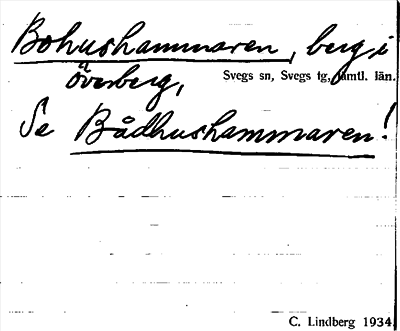 Bohushammaren, berg i
Överberg,
Svegs sn, Svegs tg, Jämtl. län.
Se Bådhushammaren!
C. Lindberg 1934